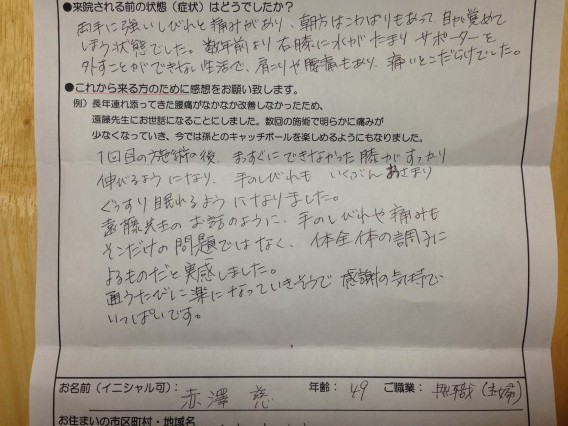 ●来院される前の状態（症状）はどうでしたか？
両手に強いしびれと痛みがあり、朝方はこわばりもあって目が覚めて
しまう状態でした。数年前より右膝に水がたまりサポーターを
外すことができない生活で、肩こりや腰痛もあり、痛いとこだらけでした。
●これから来る方のために感想をお願い致します。
例）長年連れ添ってきた腰痛がなかなか改善しなかったため、
遠藤先生にお世話になることにしました。数回の施術で明らかに痛みが
少なくなっていき、今では孫とのキャッチボールを楽しめるようにもなりました。
1回目の施術の後、まっすぐにできなかった膝がすっかり
伸びるようになり、手のしびれも いくぶん おさまり
ぐっすり眠れるようになりました。
遠藤先生のお話のように、手のしびれや痛みも
そこだけの問題ではなく、体全体の調子に
よるものだと実感しました。
通うたびに楽になっていきそうで 感謝の気持で
いっぱいです。
お名前（イニシャル可）： 赤澤 慈 年齢： 49 ご職業： 無職（主婦）
お住まいの市区町村・地域名